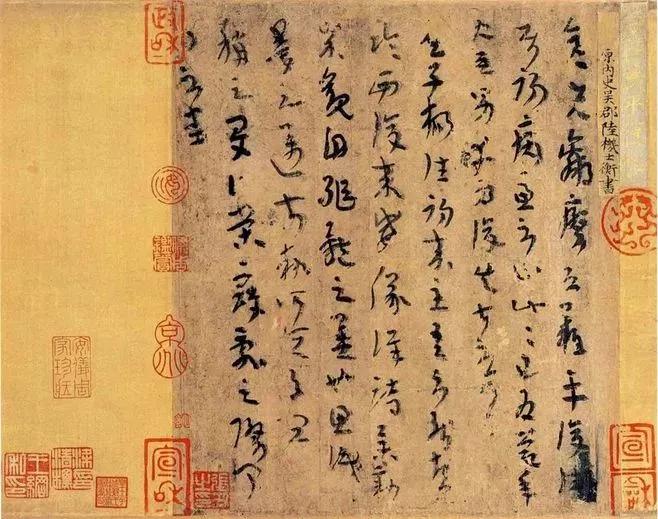 晉內史吳郡陸機士衡書
彥先羸瘵恐難平復往屬
初病慮不止此此已為慶承
使唯男幸為復失前憂耳
吳子楊往初來主吾不能盡
臨西復來威儀詳跱舉動
成觀自軀體之美也思識
量之邁前勢所恒有宜
稱之夏伯榮寇亂之際聞
問不悉
政和
宣和
宣和
安儀周家珍藏